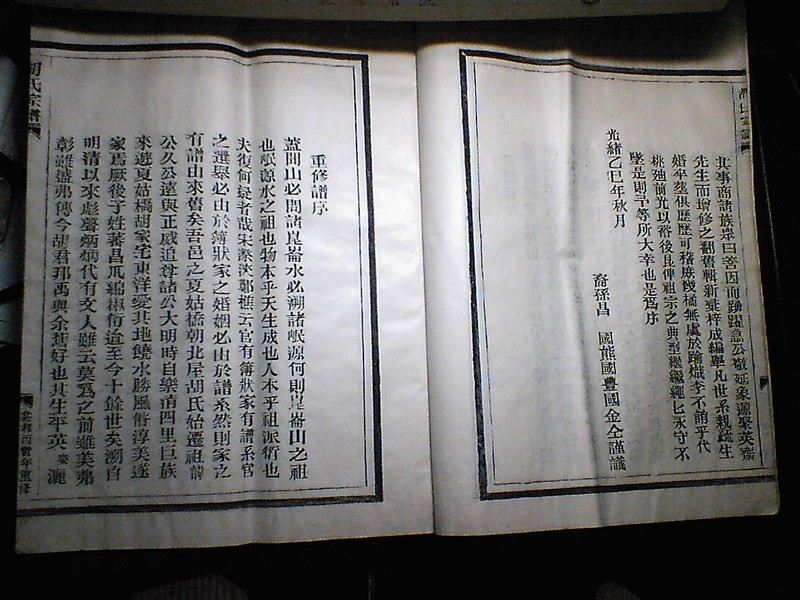 其事商諸族眾曰善因而踴躍急公敬延象源聚英齋
先生而增修之翻舊輯新棗梓成編舉凡世系親疏生
婚卒葬俱歷歷可稽庶幾橘無處於踰熾李不誚乎代
桃廸前光以裕後昆俾祖宗之典型繼繼繩匕永守不
墜是則予等所大幸也是為序
光緒乙巳年秋月
裔孫昌 國能國豐國金仝謹識
胡氏宗譜
重修譜序
蓋聞山必問諸崑崙水必溯諸岷源何則崑崙山之祖
也岷源水之祖也物本乎天生成也人本乎祖派衍也
夫復何疑者哉宋溁漈鄭樵云官有簿狀家有譜系官
之選舉必由於簿狀家之婚姻必由於譜系然則家之
有譜由來舊矣吾邑之夏姑橋朝北屋胡氏始遷祖諱
公久公遠與正威追尊諸公大明時自樂清四里巨族
來遊夏姑橋胡家宅東洋愛其地饒水勝風俗淳美遂
家焉厥後子姓蕃昌瓜綿椒衍迄至今十餘世矣溯自
明清以來彪聲炳炳代有文人雖云莫為之前雖美弗
彰雖盛弗傳今胡君那禹與余舊好也其生平英姿灑
胡氏宗譜
共和丙寅年重修